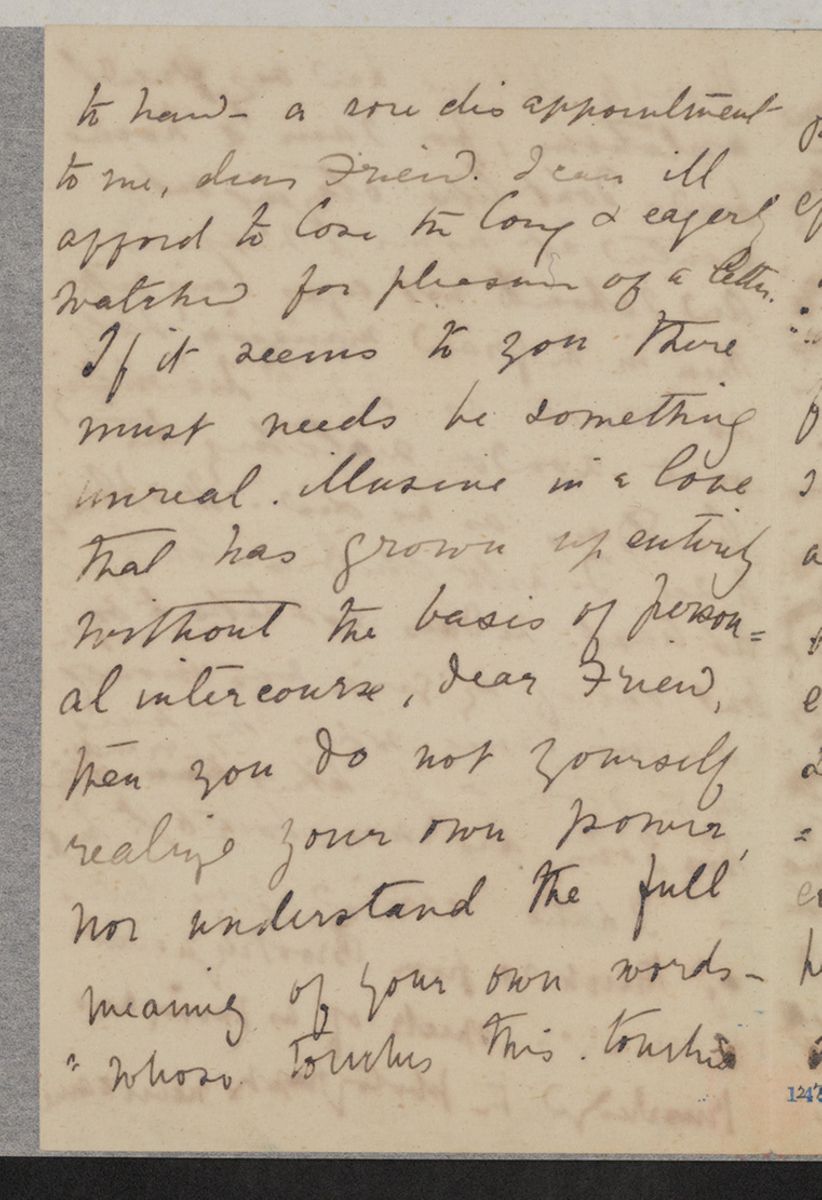 to hand – a sore disappointment
to me, dear Friend. I can ill
afford to lose the long & eagerly
watched for pleasure of a letter.
If it seems to you there
must needs be something
unreal. illusive in a love
that has grown up entirely
without the basis of person=
al intercourse, dear Friend,
then you do not yourself
realize your own power,
nor understand the full
meaning of your own words –
"whoso touches this. touches
124